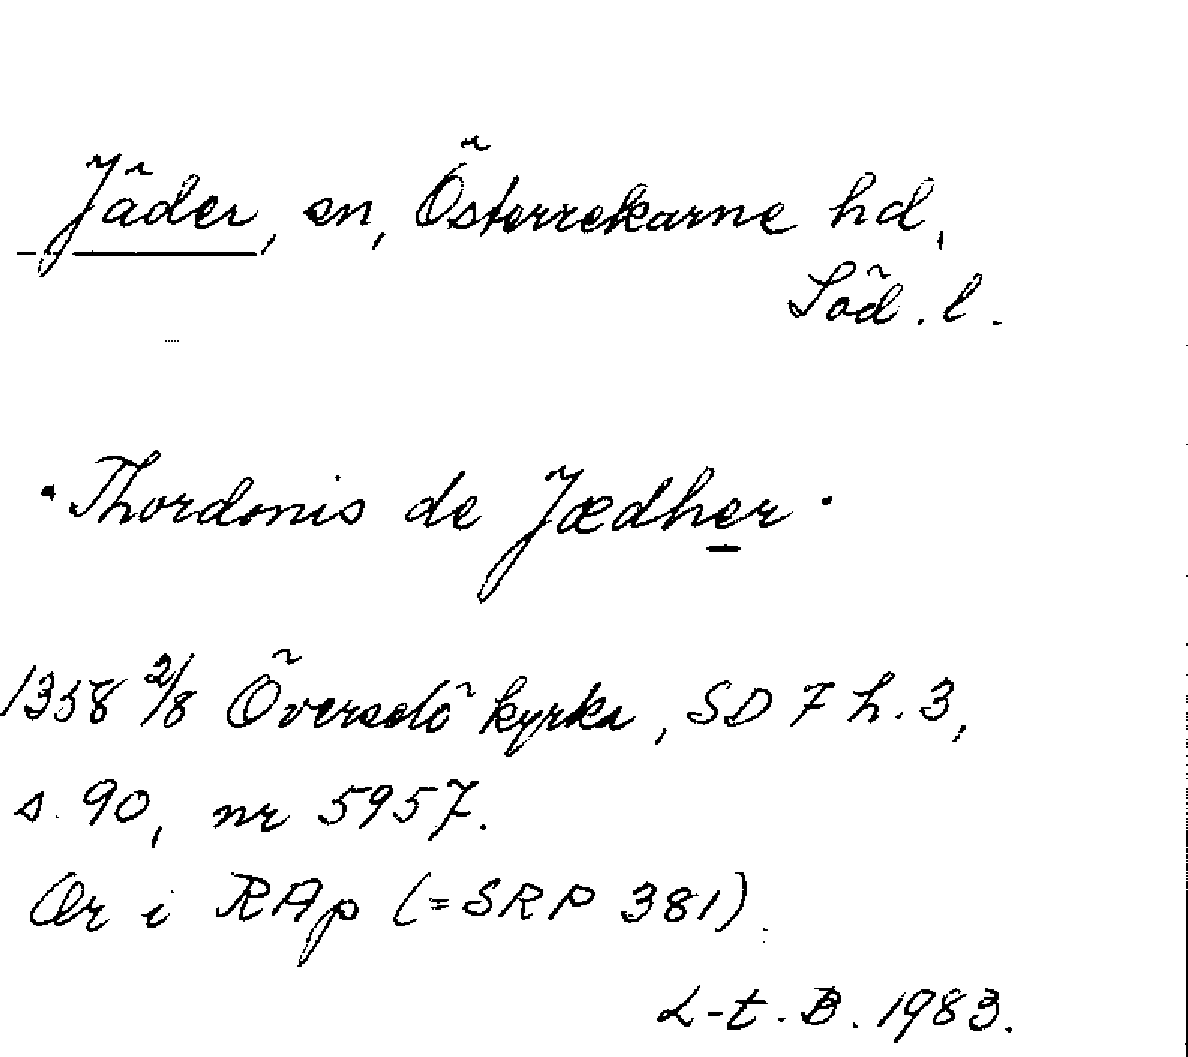 Jäder, sn, Österrekarne hd,
Söd. l.
· Thordonis de Jædher ·
1358 2/8 Överselö kyrka, SD 7 h. 3,
s. 90, nr 5957.
Or i RAp (=SRP 381).
L-t. B. 1983.